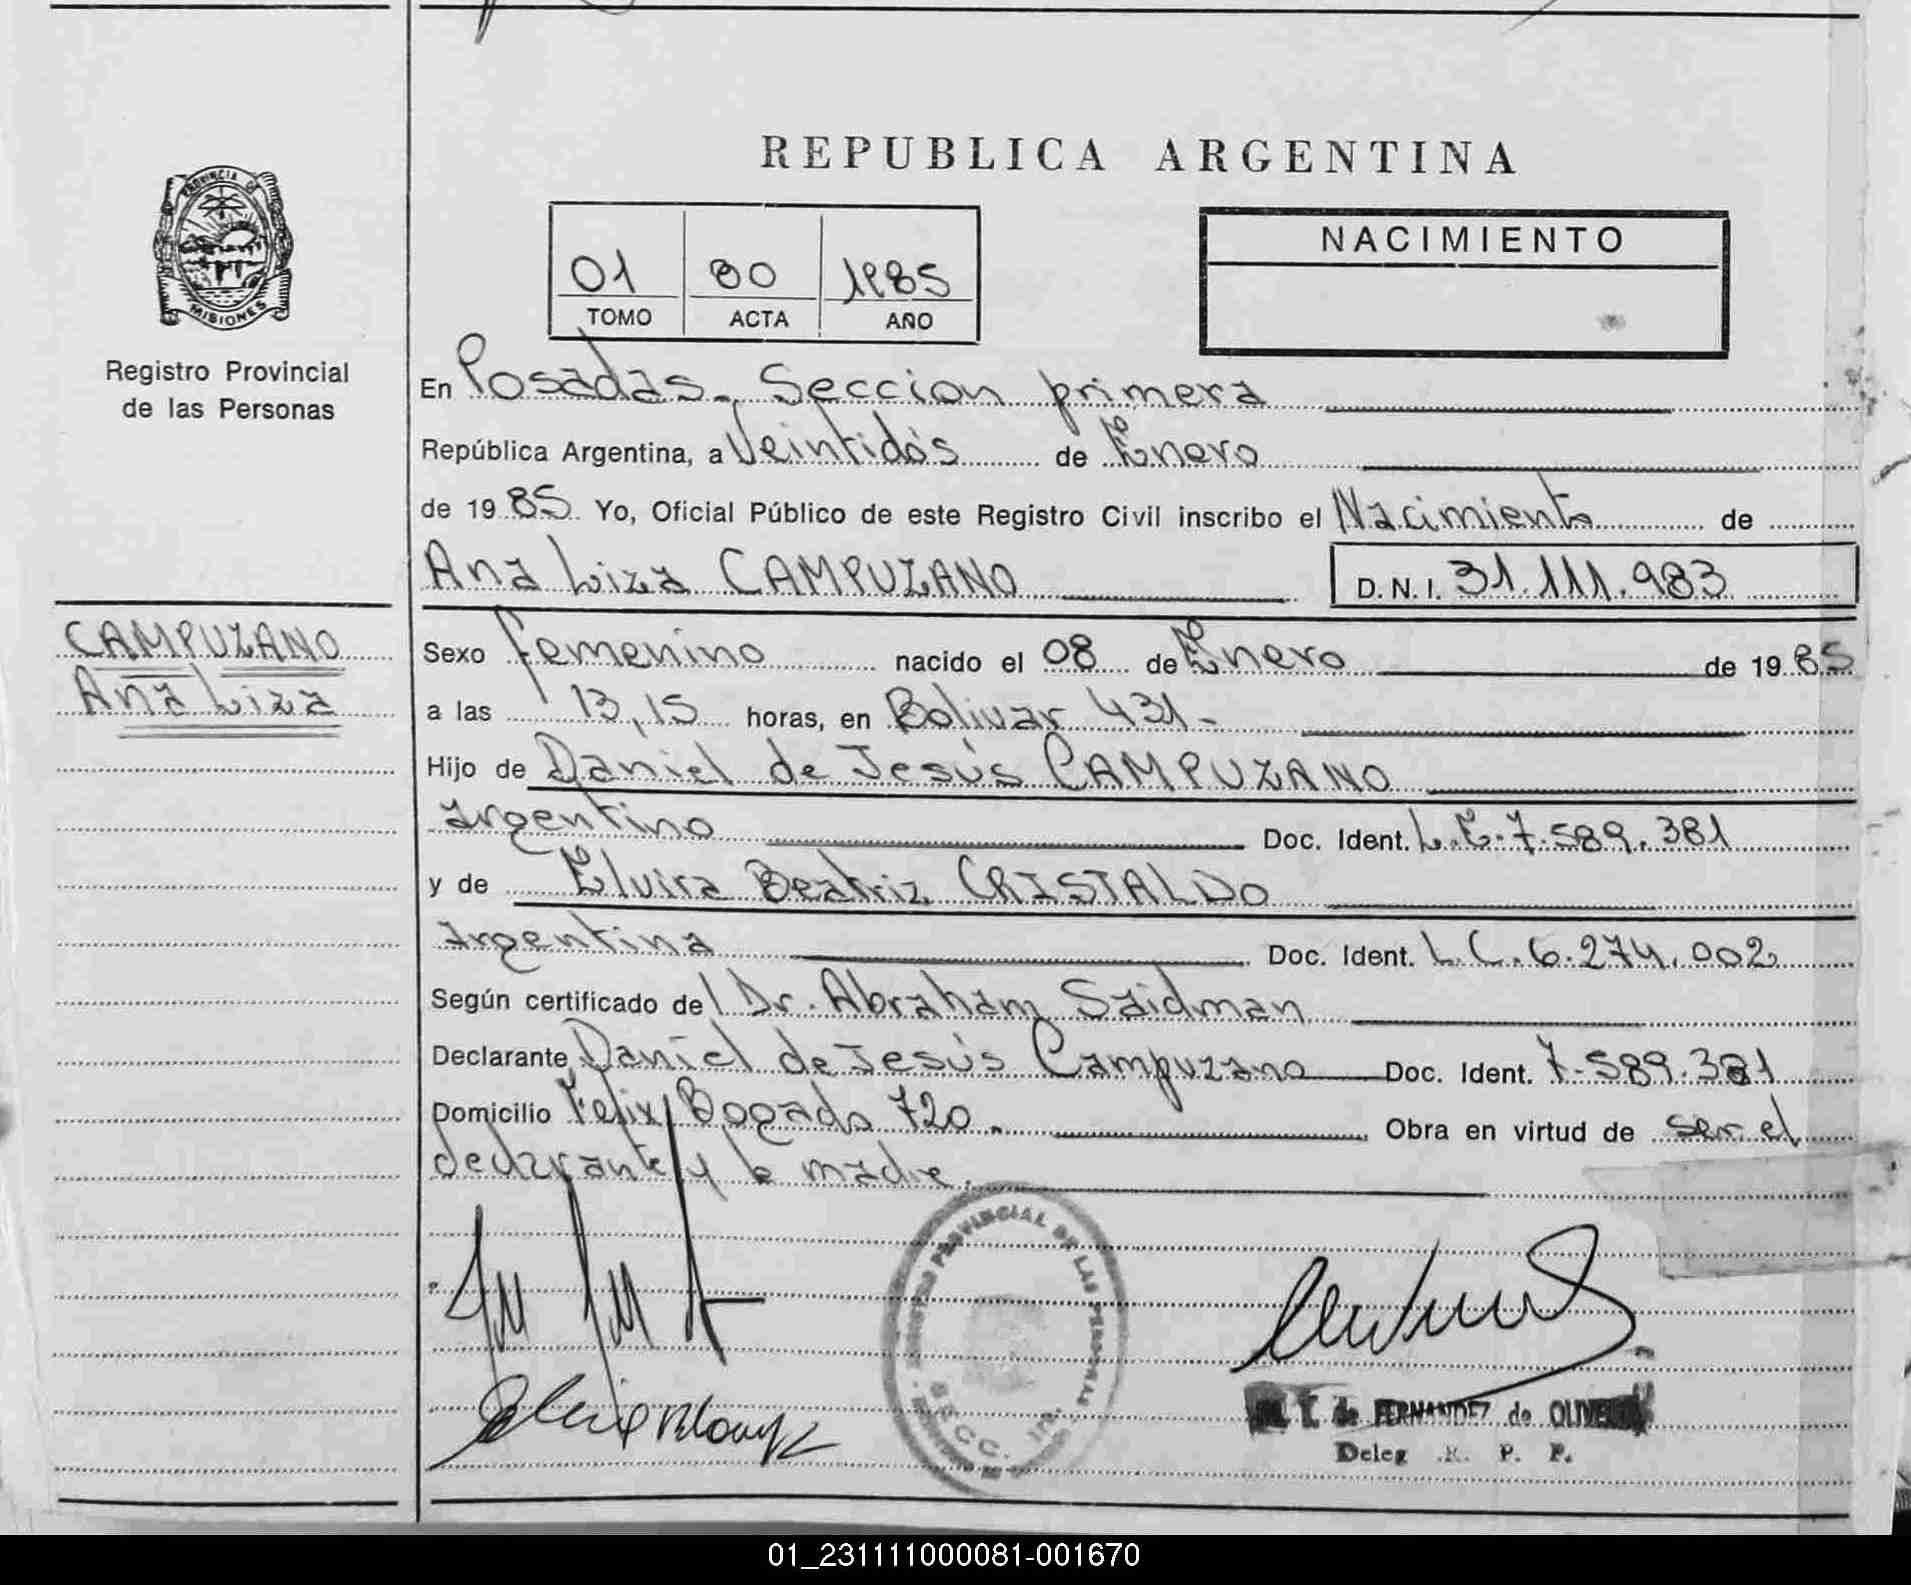 REPUBLICA ARGENTINA
PROVINCIA DE
MISIONES
Registro Provincial
de las Personas
01 80 1985
TOMO ACTA AÑO
NACIMIENTO
En Posadas. Seccion primera
República Argentina, a Veintidós de Enero
de 19 85 Yo, Oficial Público de este Registro Civil inscribo el Nacimiento de
Ana Liza CAMPUZANO D.N.I. 31.111.983
CAMPUZANO
Ana Liza
Sexo femenino nacido el 08 de Enero de 19 85
a las 13,15 horas, en Bolivar 431-
Hijo de Daniel de Jesús CAMPUZANO
argentino Doc. Ident. L.E.7.589.381
y de Elvira Beatriz CRISTALDO
argentina Doc. Ident. L.C.6.274.002
Según certificado de l Dr. Abraham Saidman
Declarante Daniel de Jesús Campuzano Doc. Ident. 7.589.381
Domicilio Felix Bogado 720. Obra en virtud de ser el
declarante y la madre.
REGISTRO PROVINCIAL DE LAS PERSONAS
SECC. 1ra.
de FERNANDEZ de OLIVEIRA
Deleg. R. P. P.
01_231111000081-001670